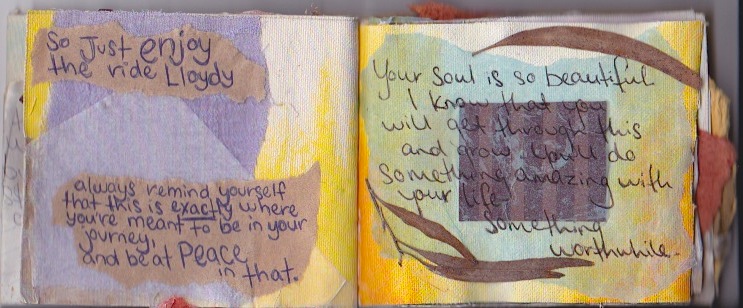 So Just enjoy
the ride Lloydy
always remind yourself
that this is exactly where
you're meant to be in your
journey,
and be at Peace
in that.
Your soul is so beautiful
I know that you
will get through this
and grow. You'll do
Something amazing with
your life
Something
worthwhile.